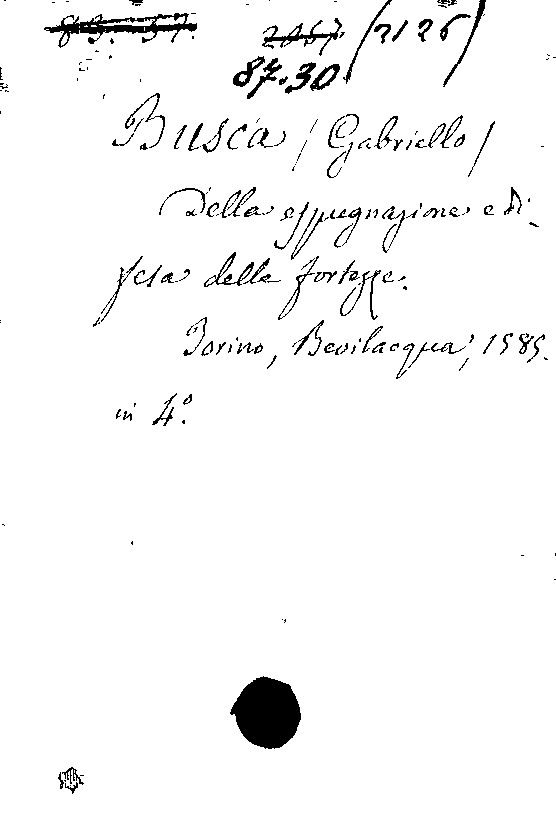 83. 57. 2067. (2126)
87.30
Busca (Gabriello)
Della espugnazione e di-
fesa delle fortezze.
Torino, Bevilacqua, 1585.
in 4º.